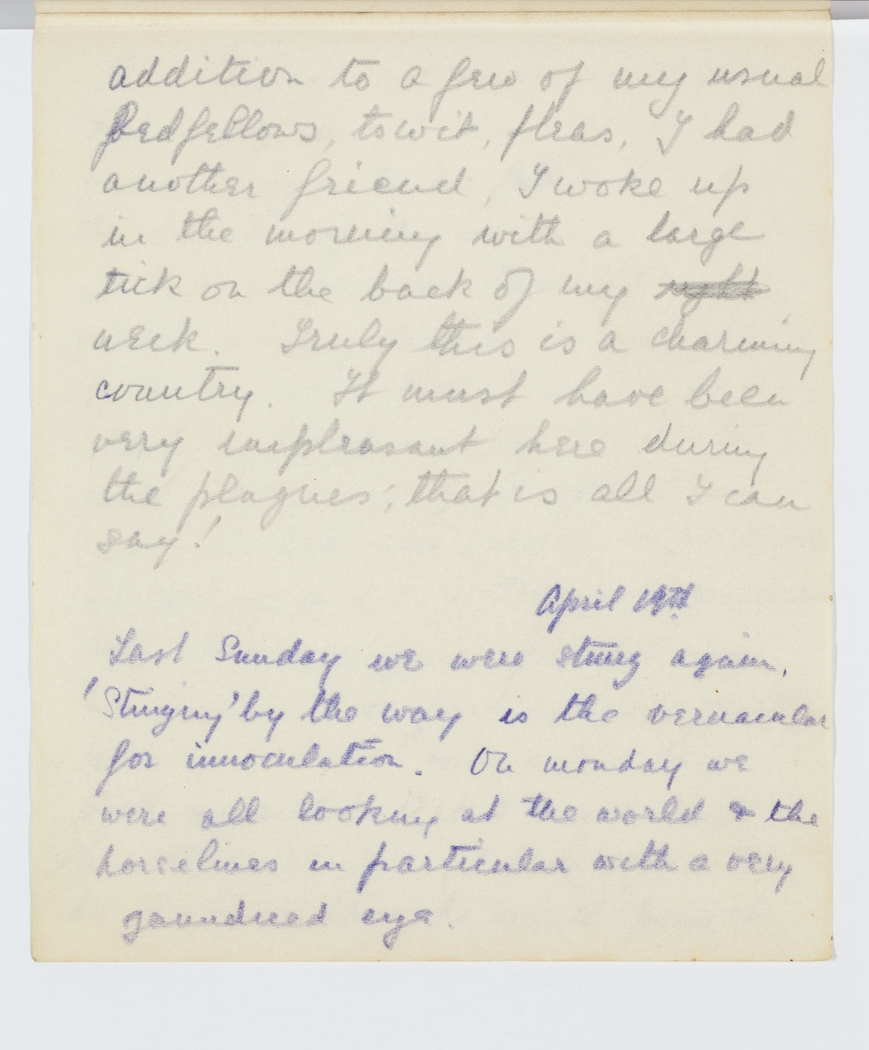 addition to a few of my usual
Bedfellows, towit, fleas, I had
another friend, I woke up
in the morning with a large
tick on the back of my right
neck. Truly this is a charming
country. It must have been
very unpleasant here during
the plagues; that is all I can
say!
April 19th
Last Sunday we were stung again,
'Stinging' by the way is the vernacular
for innoculation. On monday we
were all looking at the world & the
horselines in particular with a very
gaundiced eye.